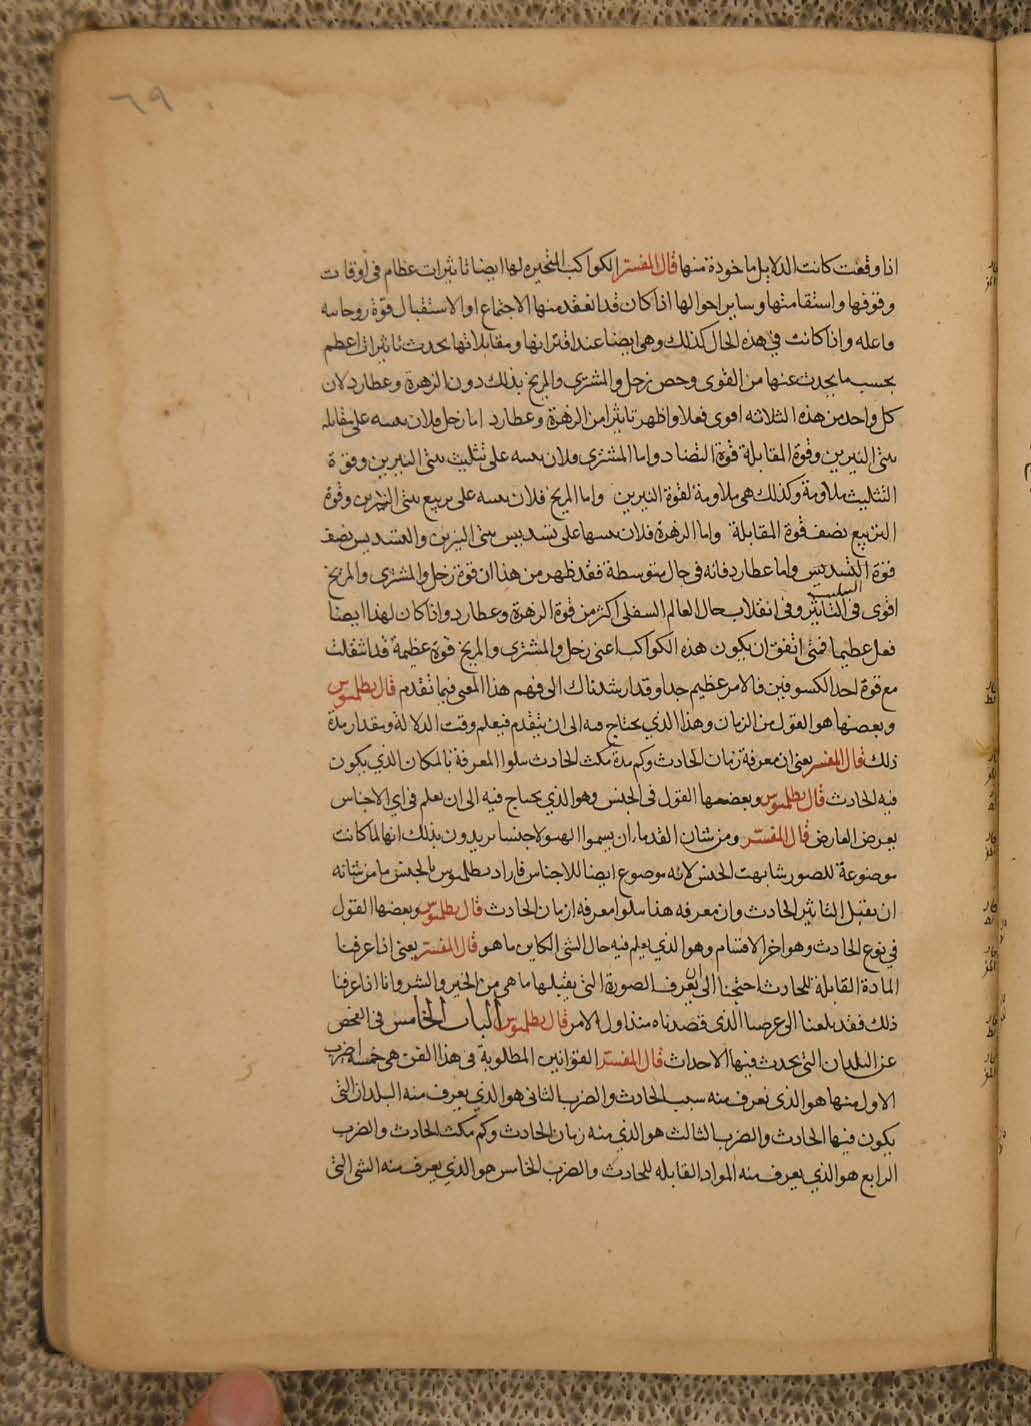 ٦٩
اذا وقعت كانت الدلايل ماخوذة منها قال المفسر الكواكب المتحيره لها ايضا تاثيرات عظام فى اوقات
وقوفها واستقامتها وساير احوالها اذا كان قد انعقد منها الاجتماع او الاستقبال قوة روحانيه
فاعله واذا كانت فى هذه الحال كذلك وهى ايضا عند اقترانها ومقابلاتها يحدث تاثيرات اعظم
بحسب ما يحدث عنها من القوى وخص زحل والمشترى والمريخ بذلك دون الزهرة وعطارد لان
كل واحد من هذه الثلاثه اقوى فعلا واظهر تاثيرا من الزهرة وعطارد اما زحل فلان بعده على مقابله
بيتى النيرين وقوة المقابلة قوة التضاد واما المشترى فلان بيته على تثليث بيتى النيرين وقوة
التثليث ملاومة وكذلك هى ملاومة لقوة النيرين واما المريخ فلان بيته على تربيع بيتى النيرين وقوة
التربيع نصف قوة المقابلة واما الزهرة فلان بيتها على تسديس بيتى النيرين والتسديس نصف
قوة التثليث واما عطارد فانه فى حال متوسطة فقد ظهر من هذا ان قوة زحل والمشترى والمريخ
اقوى فى التاثير وفى انقلاب حال العالم السفلى اكثر من قوة الزهرة وعطارد واذا كان لهذا ايضا
فعل عظيم فمتى اتفق ان يكون هذه الكواكب اعنى زحل والمشترى والمريخ قوة عظيمة قد انتقلت
مع قوة احد الكسوفين فالامر عظيم جدا وقد ارشدناك الى فهم هذا المعنى فيما تقدم قال بطلميوس
وبعضها هو القول من الزمان وهذا الذى يحتاج فيه الى ان يتقدم فيعلم وقت الدلالة ومقدار مدة
ذلك قال المفسر يعنى ان معرفة زمان الحادث وكم مدة مكث الحادث يتلوا المعرفة بالمكان الذى يكون
فيه الحادث قال بطلميوس وبعضها القول فى الجنس وهو الذى يحتاج فيه الى ان يعلم فى اى الاجناس
يعرض العارض قال المفسر ومن شان القدماء ان يسموا الهيولا جنسا يريدون بذلك انها لما كانت
موضوعة للصور شابهت الجنس لانه موضوع ايضا للاجناس فاراد بطلميوس بالجنس ما من شانه
ان يقبل التاثير الحادث وان معرفه هذا يتلوا معرفه ازمان الحادث قال بطلميوس وبعضها القول
فى نوع الحادث وهو اخر الاقسام وهو الذى يعلم فيه حال الشى الكاين ما هو قال المفسر يعنى اذا عرفنا
المادة القابلة للحادث احتجنا الى ان نعرف الصورة التى يقبلها ما هى من الخير والشر وانا اذا عرفنا
ذلك فقد بلغنا الى غرضنا الذى قصدناه منذ اول الامر قال بطلميوس الباب الخامس فى الفحص
عن البلدان التى يحدث فيها الاحداث قال المفسر القوانين المطلوبة فى هذا الفن هى خمسة اضرب
الاول منها هو الذى نعرف منه سبب الحادث والضرب الثانى هو الذى يعرف منه البلدان التى
يكون فيها الحادث والضرب الثالث هو الذى منه زمان الحادث وكم مكث الحادث والضرب
الرابع هو الذى يعرف منه المواد القابله للحادث والضرب الخامس هو الذى يعرف منه الشى التى